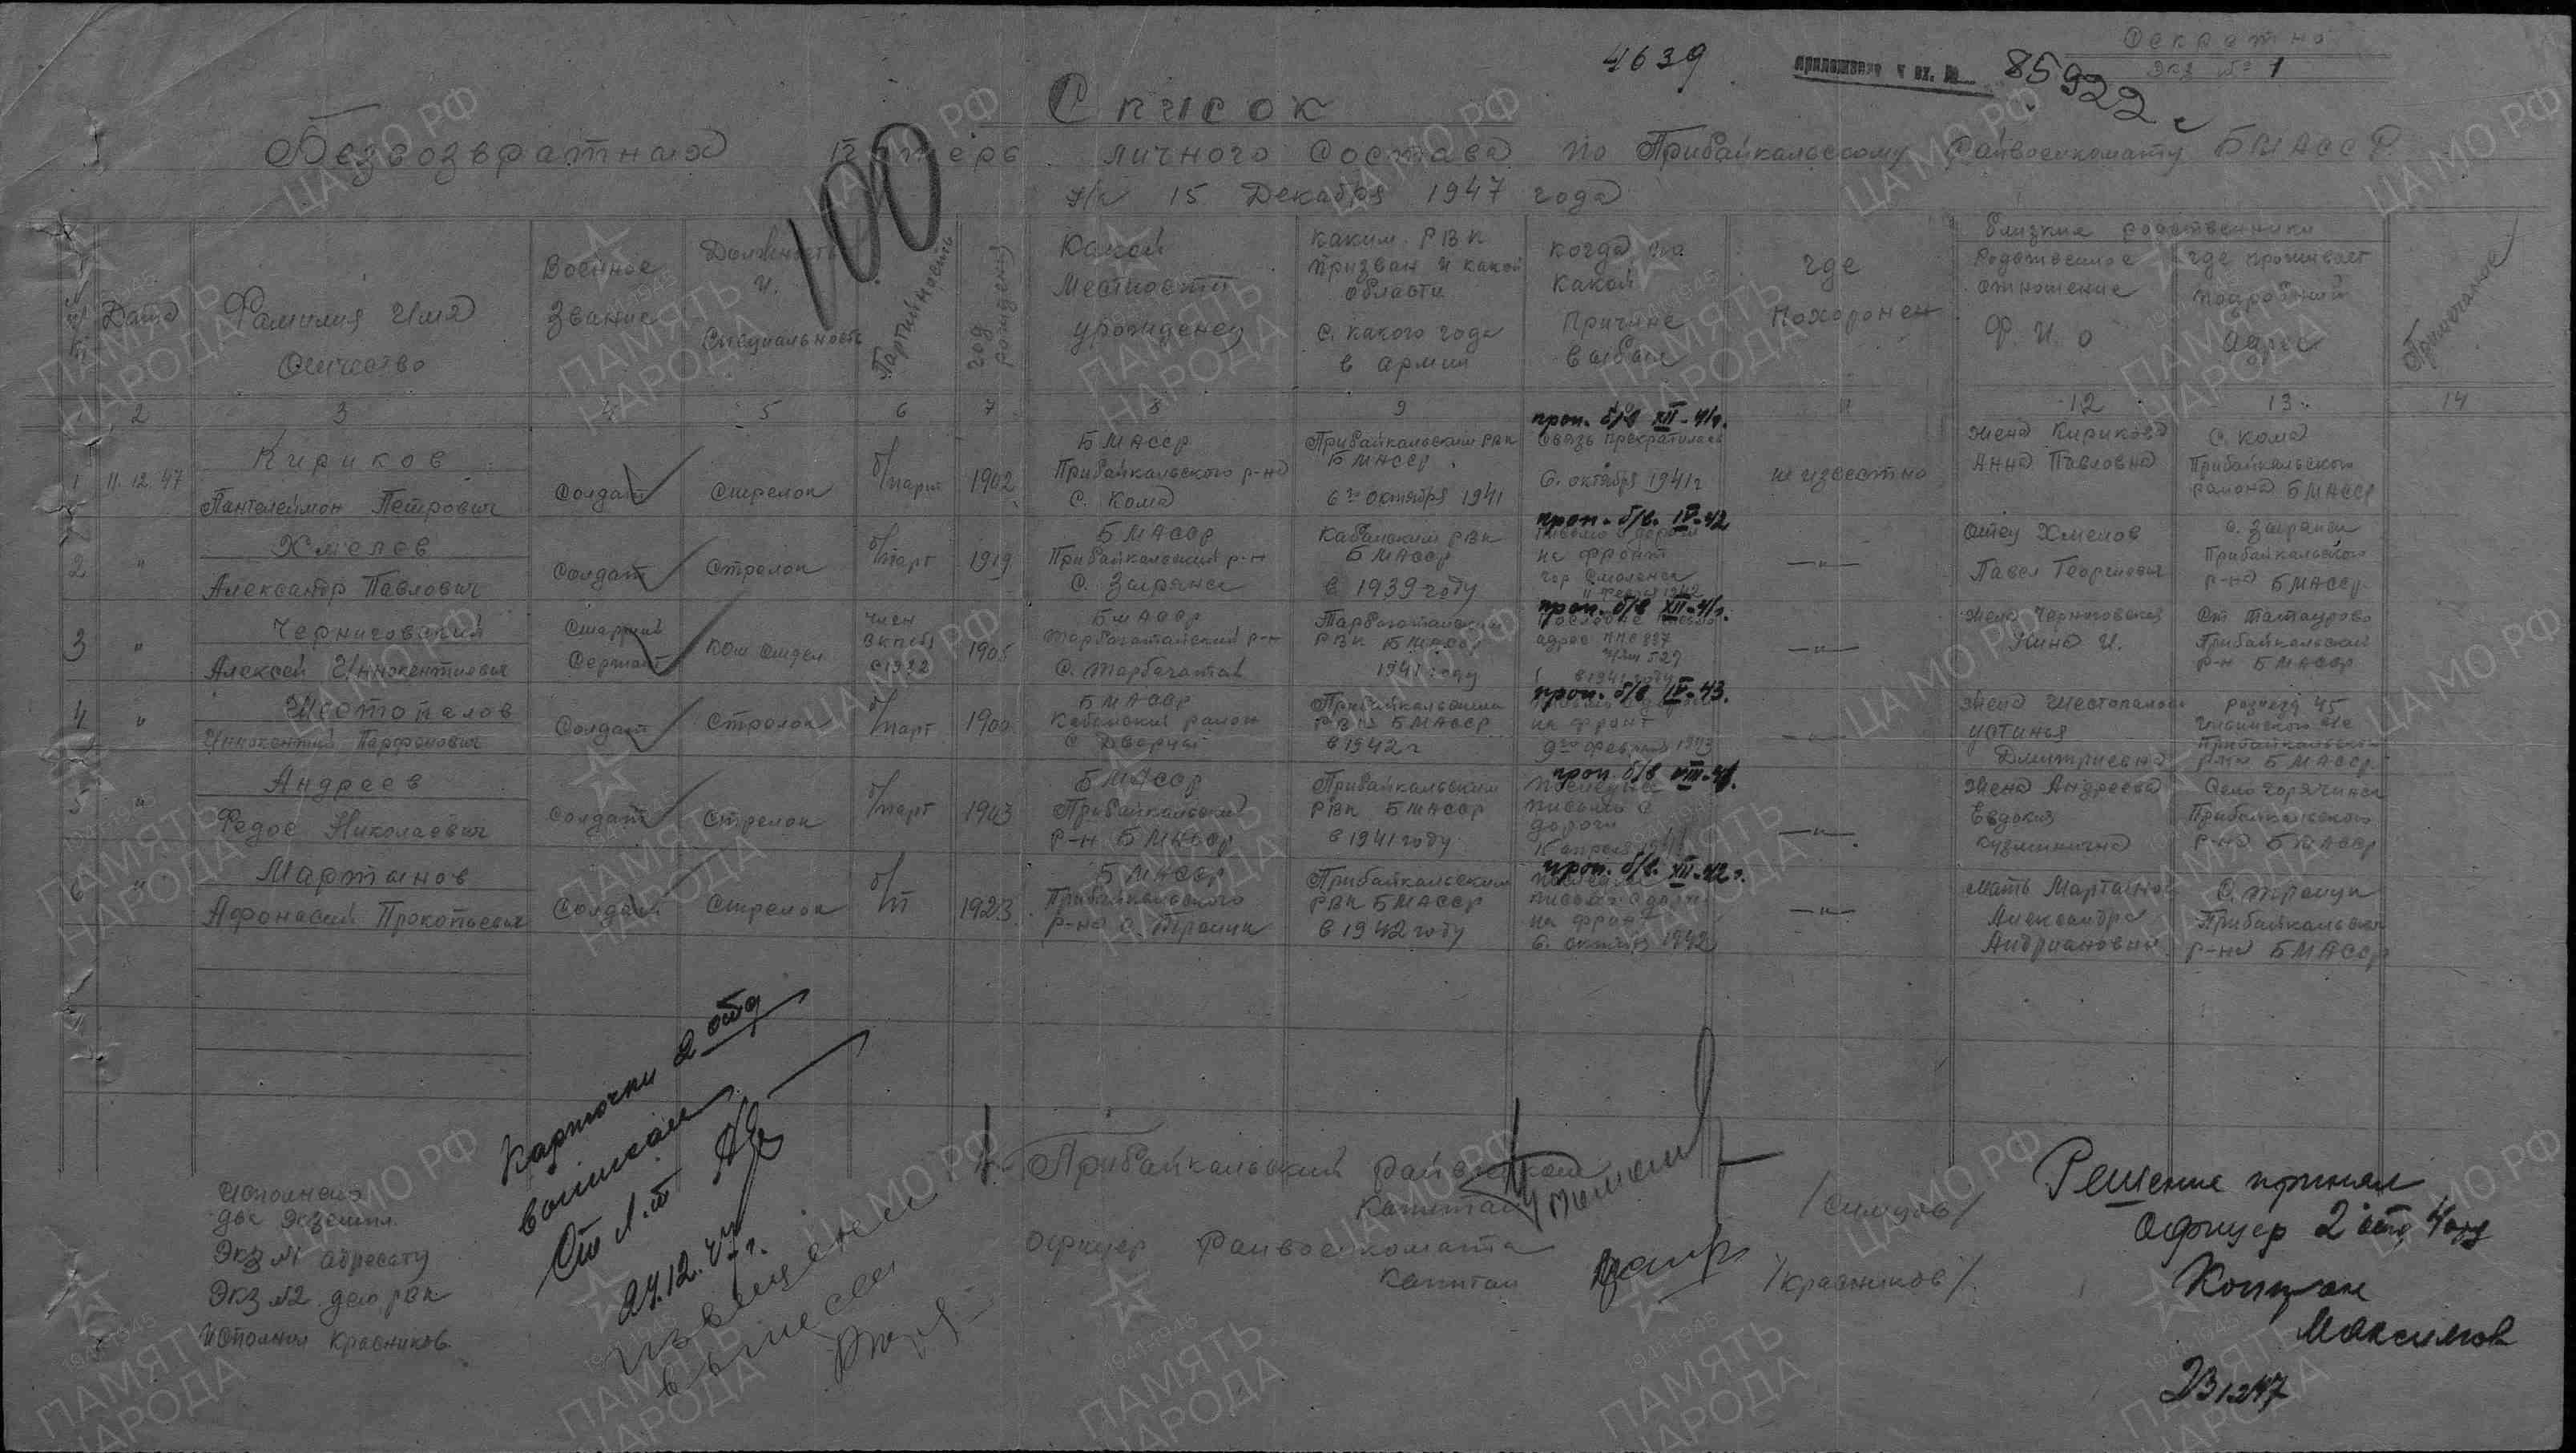 Секретно
Экз №1
4639
приложение к вх. № 85922с
Список
Безвозвратных потерь личного состава по Прибайкальскому Райвоенкомату БМАССР
на 15 Декабря 1947 года
100
№ Дата Фамилия Имя Отчество
Военное Звание
Должность и Специальность
Партийность
год рождения
Какой Местности урожденец
каким РВК призван и какой области
С какого года в армии
когда по какой Причине выбыл
где похоронен
близкие родственники
Родственное отношение Ф. И. О
где проживает подробный адрес
Примечание
2 3 4 5 6 7 8 9 11 12 13 14
1 11.12.47 Кириков
Пантелеймон Петрович
Солдат Стрелок б/парт 1902
БМАССР
Прибайкальского р-на
С. Кома
Прибайкальским РВК
БМАССР
6го октября 1941
проп. б/в XII-41г.
Связь прекратилась
6. октября 1941г
не известно
жена Кирикова
Анна Павловна
С. Кома
Прибайкальского
района БМАССР
2 " Хмелев
Александр Павлович
Солдат Стрелок б/парт 1919
БМАССР
Прибайкальский р-н
С. Зырянск
Кабанским РВК
БМАССР
в 1939 году
проп. б/в. IV-42
на фронт
гор Смоленск
—"—
Отец Хмелов
Павел Георгиевич
с. Зырянск
Прибайкальского
р-на БМАССР
3 " Черниговский
Алексей Иннокентиевич
Старший Сержант
Ком отдел
член ВКП(б) с 1932
1905
БМАССР
Тарбагатайский р-н
С. Тарбагатай
Тарбагатайским
РВК БМАССР
1941 году
проп. б/в XII-41г.
адрес ППС 887
в 1941 году
—"—
жена Черниговская
Нина И.
Ст Татаурово
Прибайкальский
р-н БМАССР
4 " Шестопалов
Иннокентий Парфенович
Солдат Стрелок б/парт 1900
БМАССР
Кабанский район
С Дворец
Прибайкальским
РВК БМАССР
в 1942 г
проп. б/в IV-43.
на фронт
9го февраля 1943
—"—
жена Шестопалова
Устинья
Дмитриевна
разъезд 45
Прибайкальский
р-н БМАССР
5 " Андреев
Федос Николаевич
Солдат Стрелок б/парт 1903
БМАССР
Прибайкальский
р-н БМАССР
Прибайкальским
РВК БМАССР
в 1941 году
проп. б/в VIII-41.
Последнее
письмо с
дороги
15 апреля 1941
—"—
жена Андреева
Евдокия
Кузминична
Село Горячинск
Прибайкальского
р-на БМАССР
6 " Мартынов
Афонасий Прокопьевич
Солдат Стрелок б/п 1923
БМАССР
Прибайкальского
р-на С. Троицк
Прибайкальским
РВК БМАССР
в 1942 году
проп. б/в. XII-42г.
Последнее
на фронт
6. октября 1942
—"—
мать Мартынова
Александра
Андриановна
С. Троицк
Прибайкальский
р-на БМАССР
Карточки 2 отд
выписал
Ст Л-т
24.12.47г.
извещение
выписал
Прибайкальский райвоенком
Капитан /Симцов/
Офицер Райвоенкомата
Капитан /Красников/
Исполнено
два экземпл.
Экз №1 адресату
Экз №2 дело РВК
Исполнил Красников
Решение принял
Офицер 2 отд 4 отд
Капитан
Максимов
23 12 47
ЦА МО РФ
1941-1945
ПАМЯТЬ НАРОДА